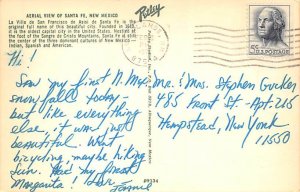 AERIAL VIEW OF SANTA FE, NEW MEXICO
La Villa de San Francisco de Asisi de Santa Fe is the
original full name of this beautiful City. Founded in 1610,
it is the oldest capital city in the United States. Nestled at
the foot of the Sangre de Cristo Mountains, Santa Fe is also
the center of the three dominant cultures of New Mexico —
Indian, Spanish and American.
Patsy
5¢ U.S. POSTAGE
Hi!
Saw your first N. Mex.
snow fall today -
but like everything
else, it was just
beautiful. Went
bicycling, maybe hiking
Sun. Had my first
Margarita! Love
Mr. & Mrs. Stephen Gucker
485 Front St - Apt 215
Hempstead, New York
11550